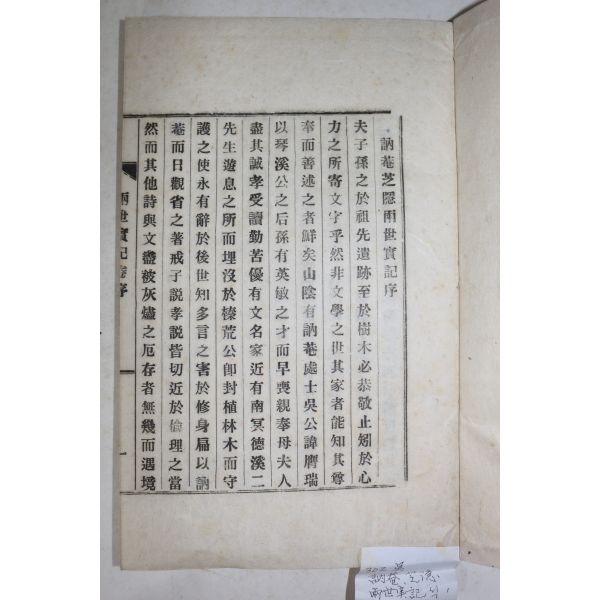 訥菴芝隱兩世實記序
夫子孫之於祖先遺跡至於樹木必恭敬止矧於心
力之所寄文字乎然非文學之世其家者能知其尊
奉而善述之者鮮矣山陰有訥菴處士吳公諱膺瑞
以琴溪公之后孫有英敏之才而早喪親奉母夫人
盡其誠孝受讀勤苦優有文名家近有南冥德溪二
先生遊息之所而埋沒於榛荒公卽封植林木而守
護之使永有辭於後世知多言之害於修身扁以訥
菴而日觀省之著戒子說孝說皆切近於倫理之當
然而其他詩與文盡被灰燼之厄存者無幾而遇境
兩世實記卷序
一
訥菴 芝隱
兩世實記